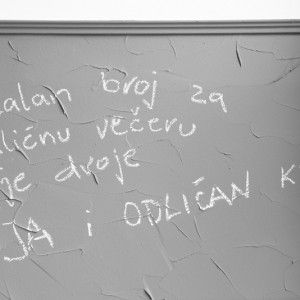 alan broj za
ličnu večeru
je dvoje
JA i ODLIČAN K